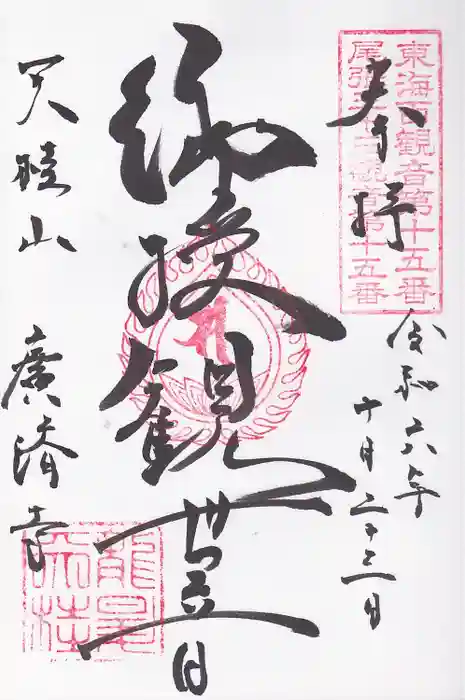 東海百観音第十五番
尾張三十三観音第十五番
奉拝
令和六年
十月二十三日
縁授観世音
天睦山 廣済寺